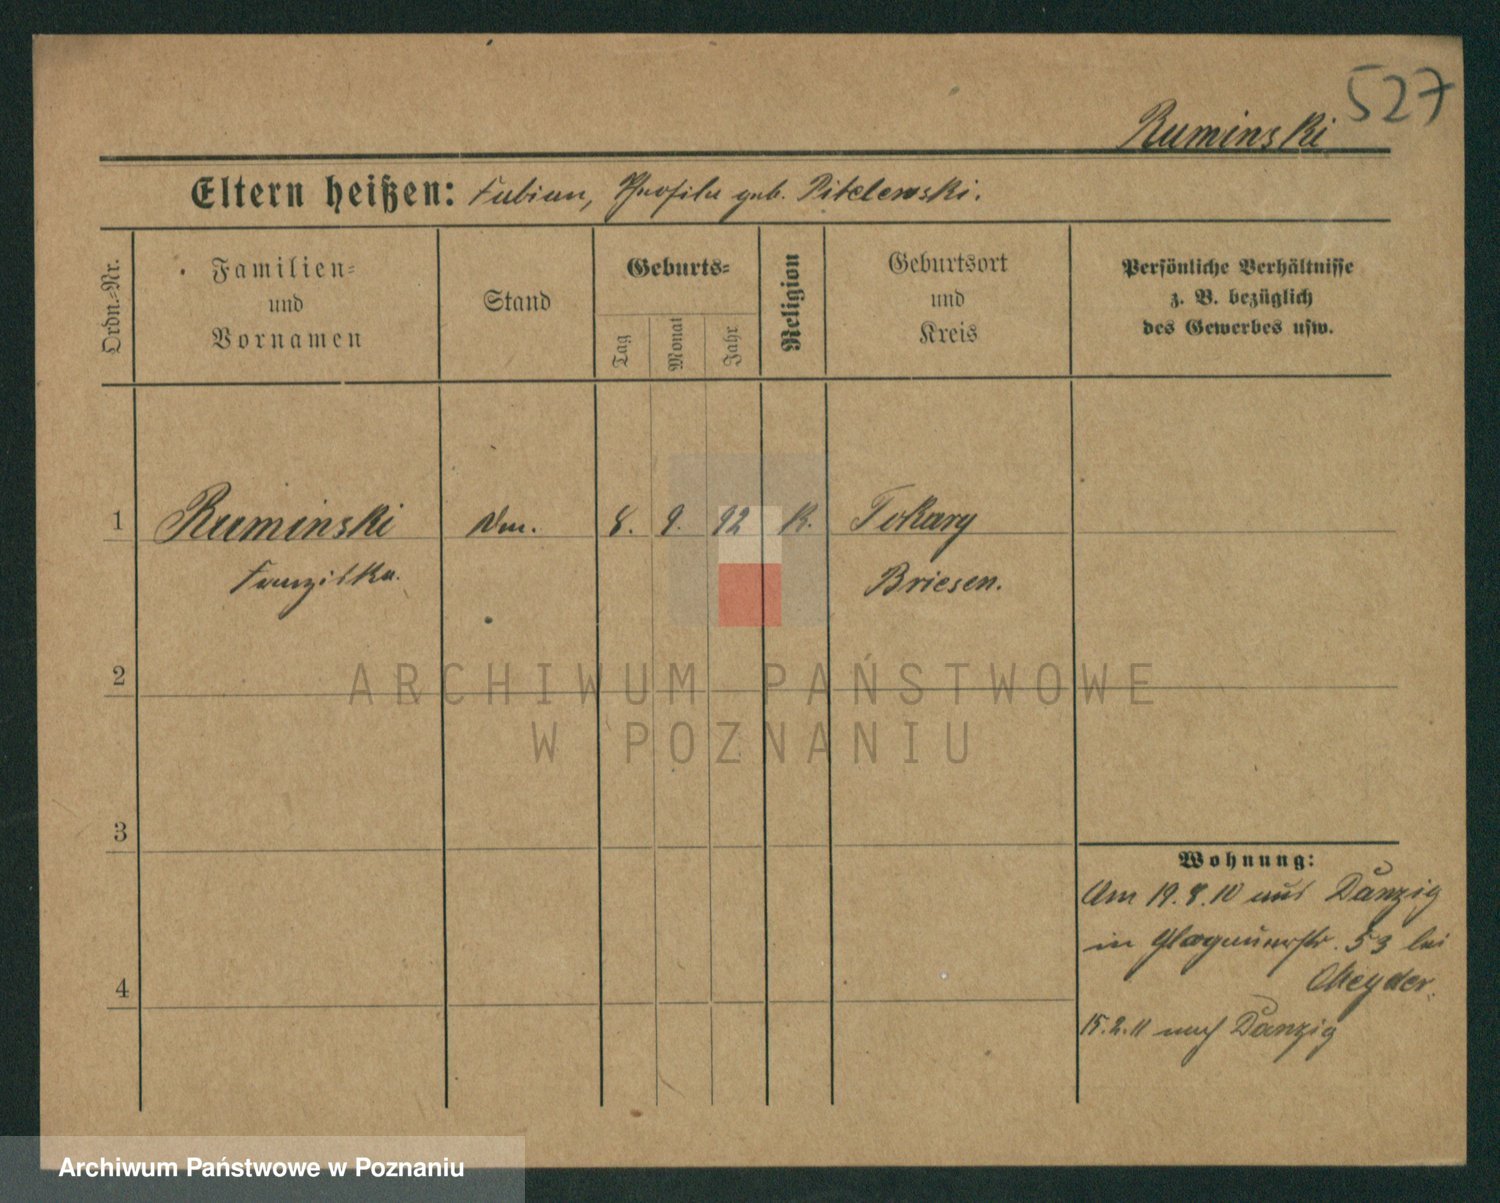 527
Ruminski
Eltern heißen: Fabian, geb. Pitelewski.
Ordn.=Nr.
Familien=
und
Vornamen
Stand
Geburts=
Tag
Monat
Jahr
Religion
Geburtsort
und
Kreis
Persönliche Verhältnisse
z. B. bezüglich
des Gewerbes usw.
1 Ruminski 8. 9. 92 K. Tokary
Franziska. Briesen.
2
3
4
Wohnung:
Am 19.8.10 aus Danzig
in 53 bei
15.2.11 nach Danzig
ARCHIWUM PAŃSTWOWE
W POZNANIU
Archiwum Państwowe w Poznaniu